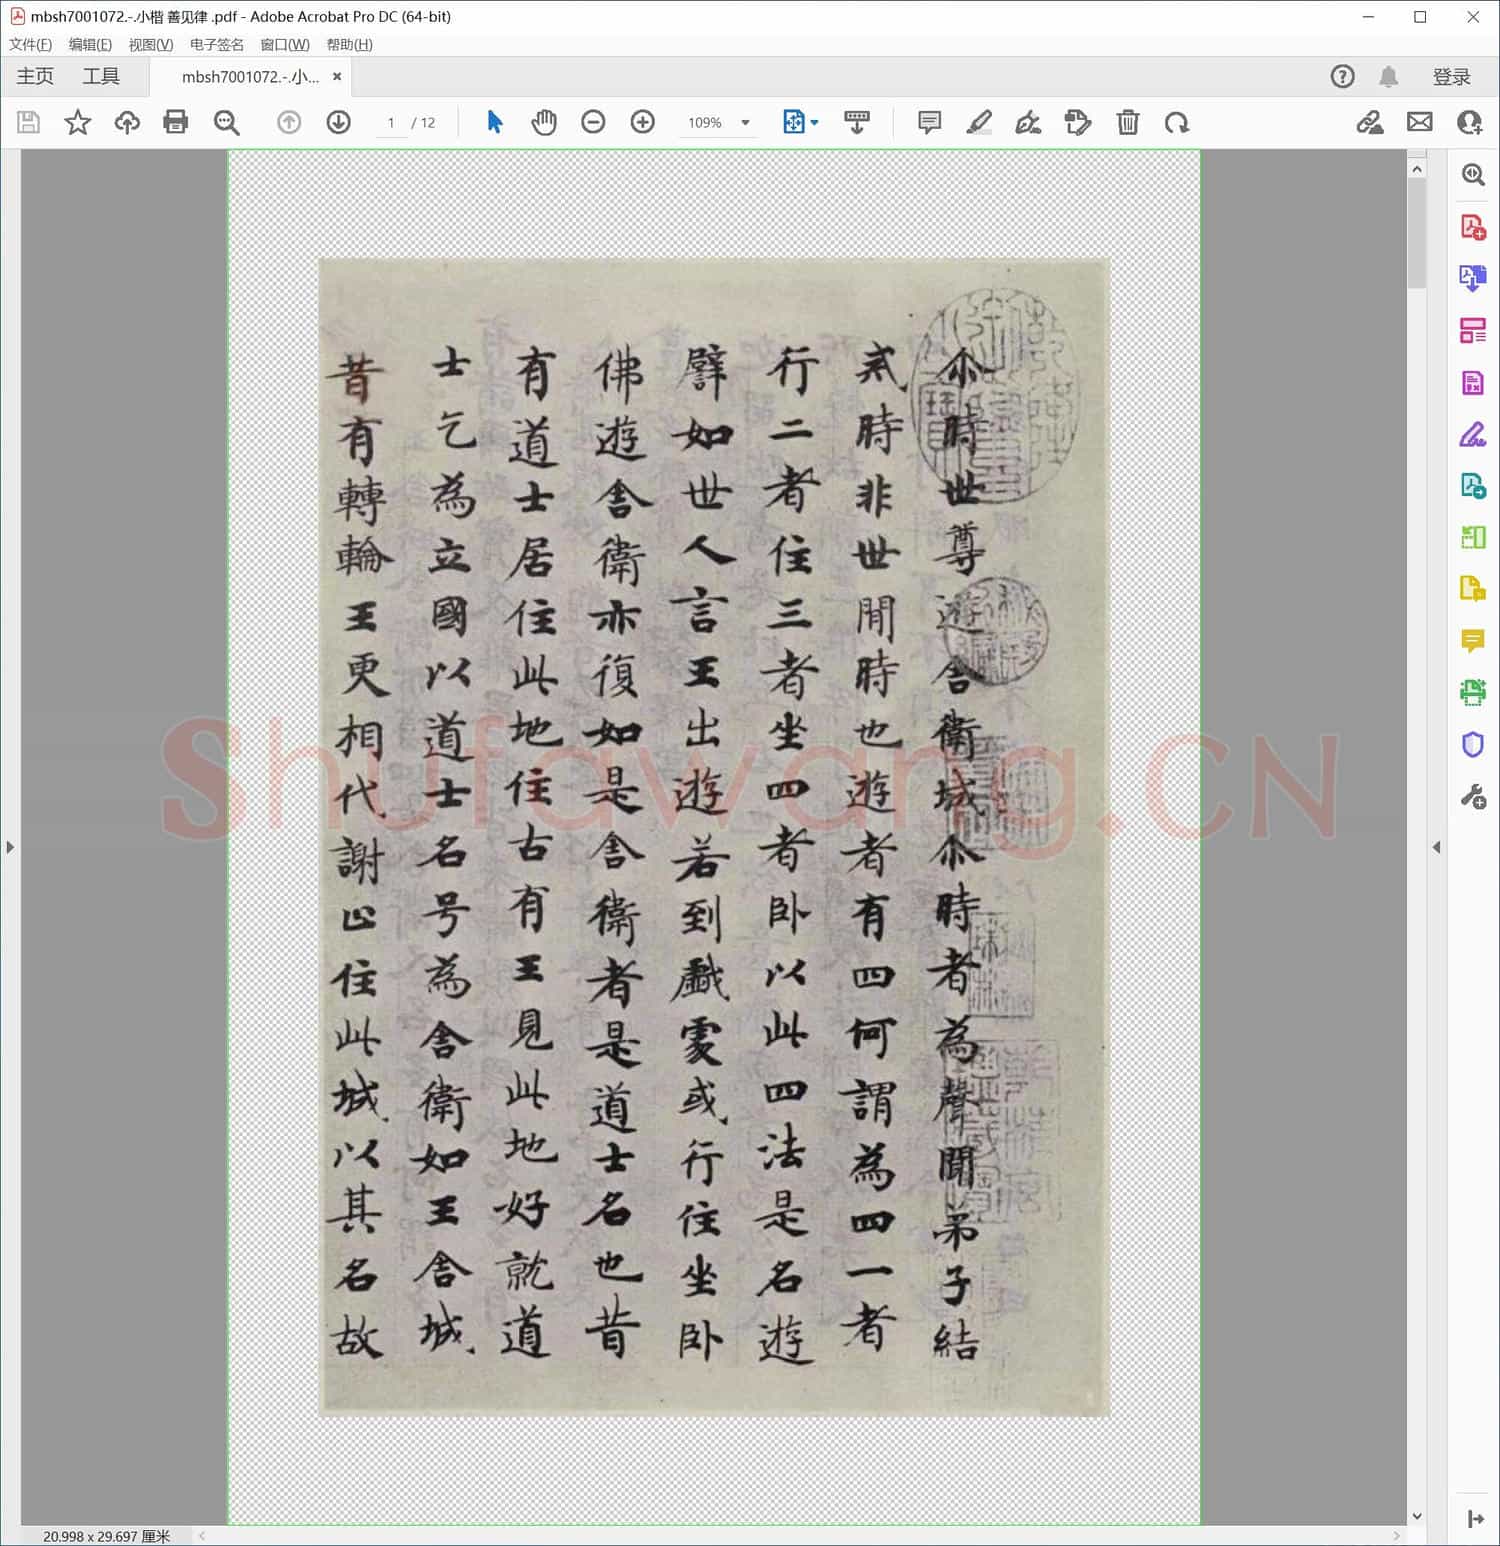 mbsh7001072.-.小楷 善见律 .pdf - Adobe Acrobat Pro DC (64-bit)
文件(F) 编辑(E) 视图(V) 电子签名 窗口(W) 帮助(H)
主页 工具 mbsh7001072.-.小... × 登录
1 / 12 109%
尒時世尊遊舍衛城尒時者為聲聞弟子結
戒時非世間時也遊者有四何謂為四一者
行二者住三者坐四者卧以此四法是名遊
譬如世人言王出遊若到戲處或行住坐卧
佛遊舍衛亦復如是舍衛者是道士名也昔
有道士居住此地住古有王見此地好就道
士乞為立國以道士名号為舍衛如王舍城
昔有轉輪王更相代謝止住此城以其名故
Shufawang.CN
20.998 x 29.697 厘米